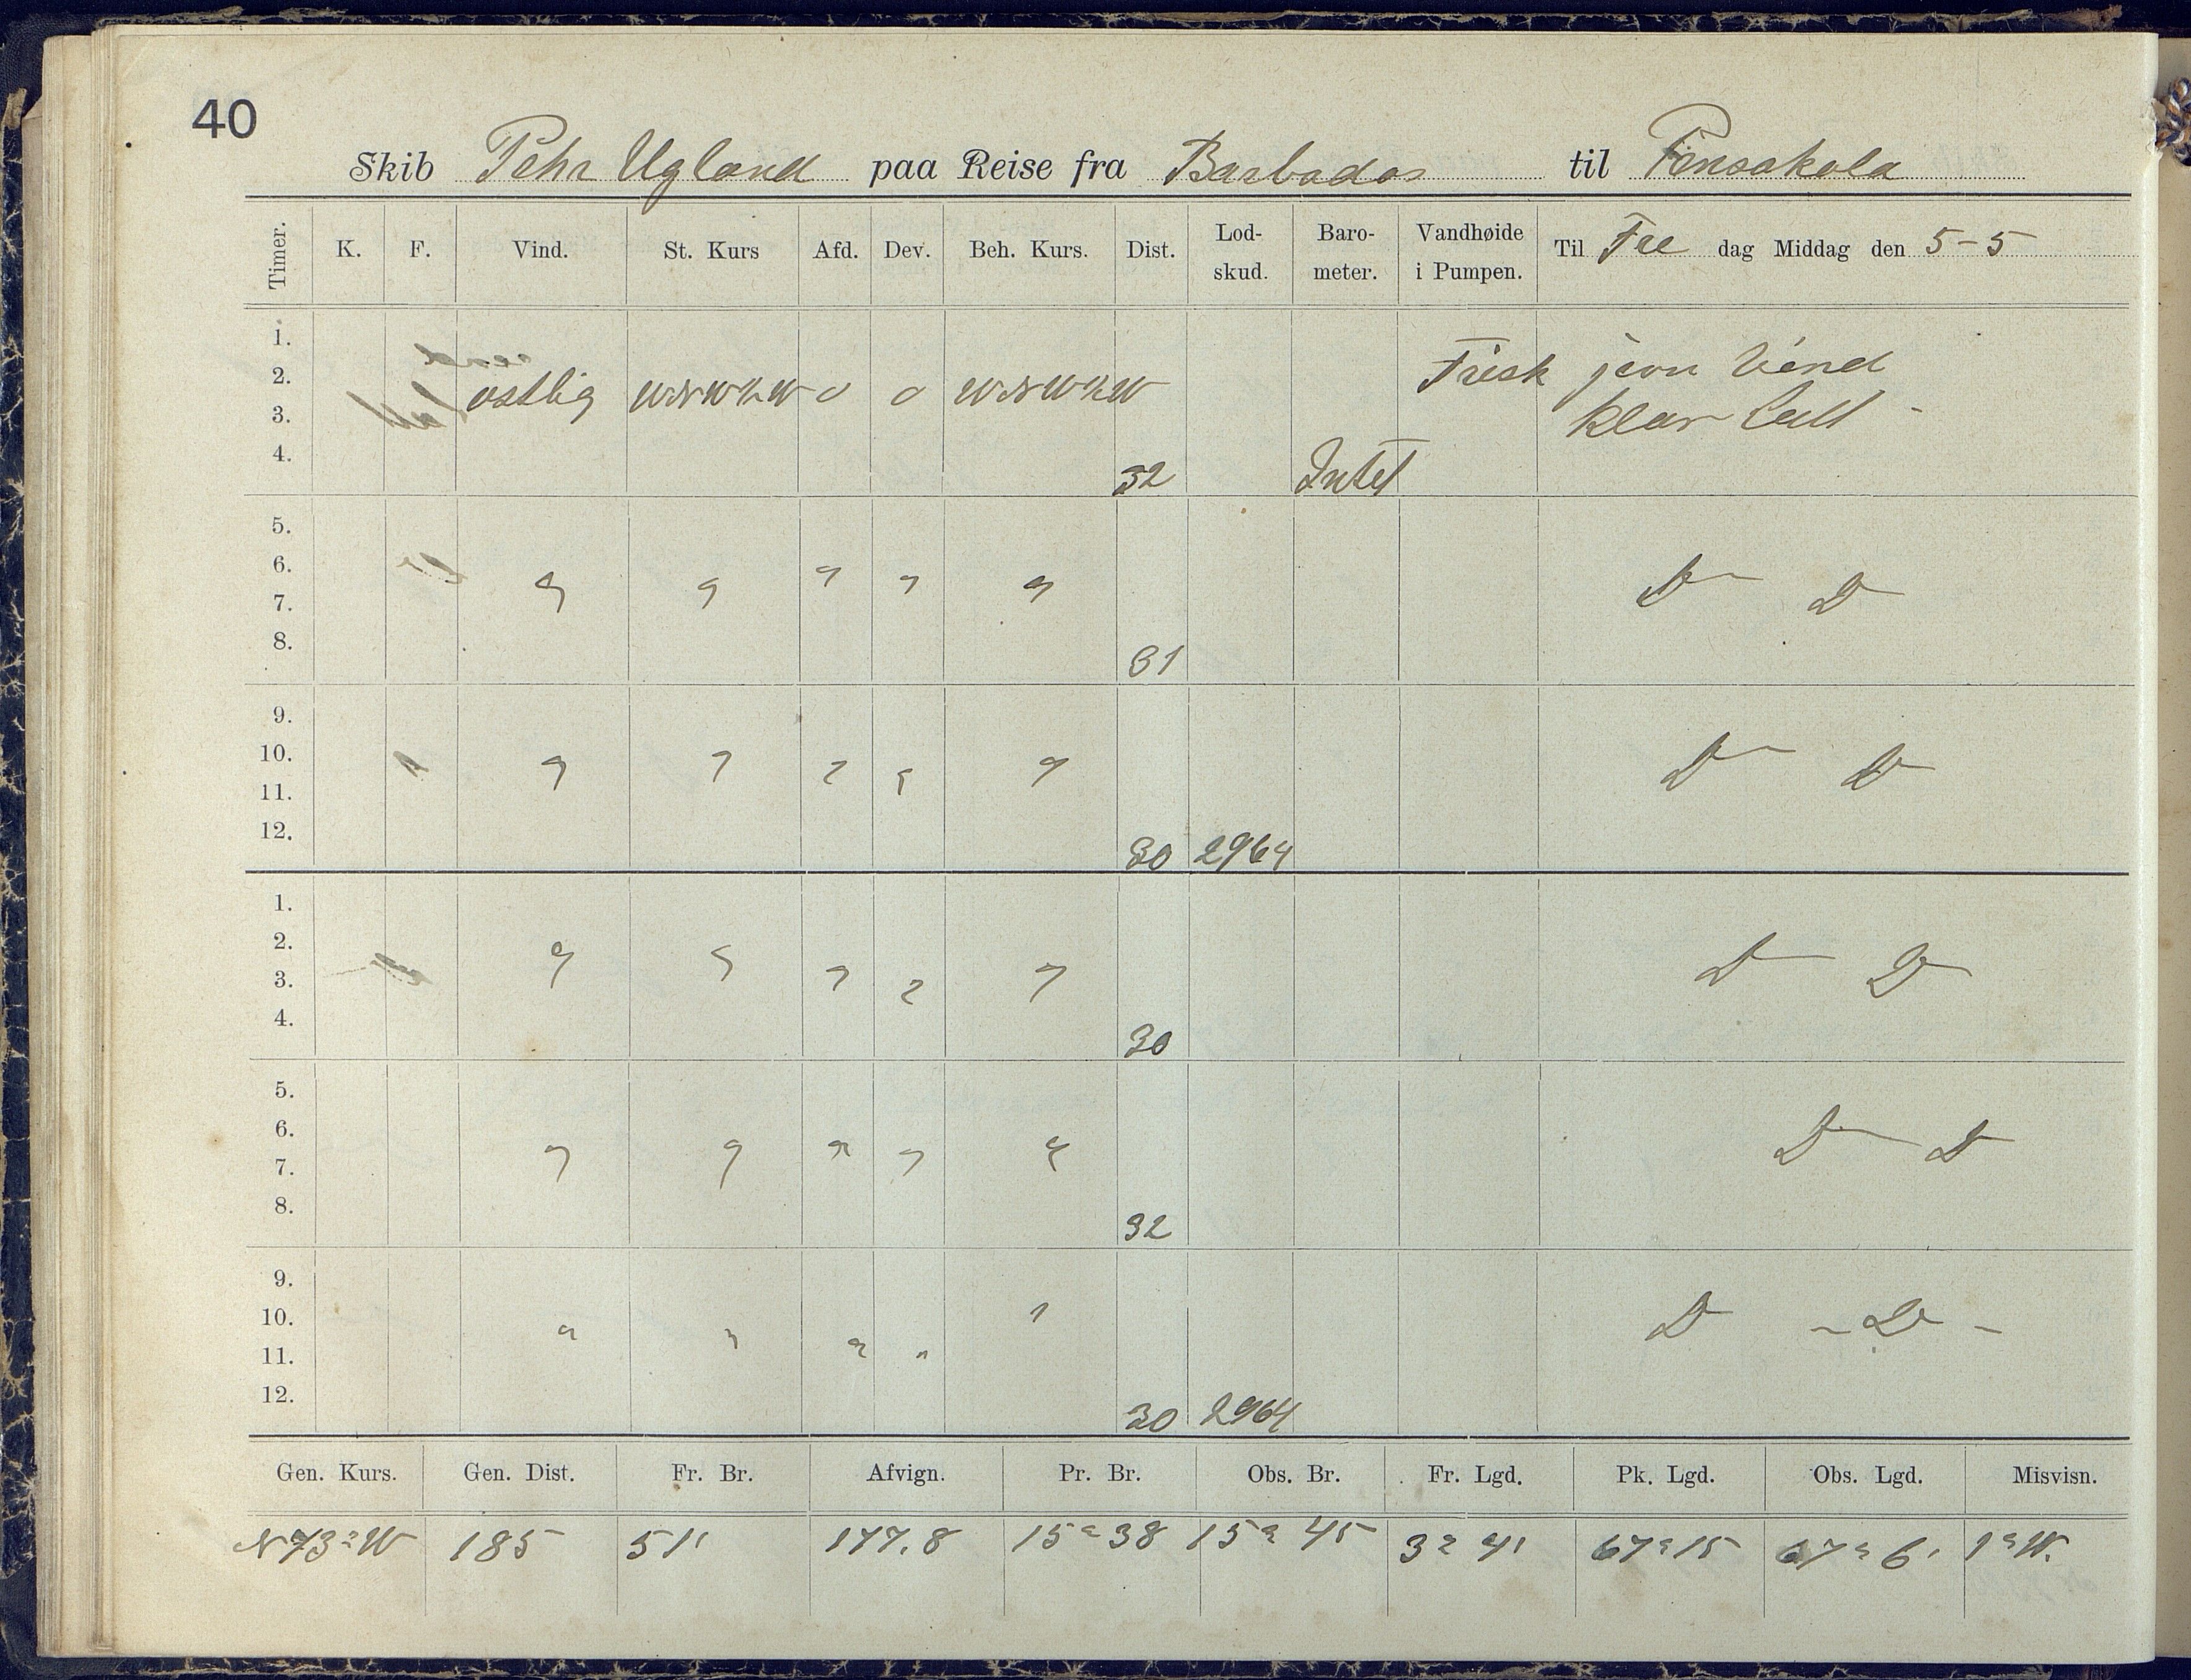 40
Skib Pehr Ugland paa Reise fra Barbados til Pensakola
Timer. K. F. Vind. St. Kurs Afd. Dev. Beh. Kurs. Dist. Lod-skud. Baro-meter. Vandhøide i Pumpen. Til Fre dag Middag den 5-5
1.
2. ostlig WNW½W 0 0 WNW½W Frisk jevn Vind
3. klar Luft -
4. 32 Intet
5.
6. " " " " " D D
7.
8. 31
9.
10. " " " " " D D
11.
12. 30 2964
1.
2. " " " " " D D
3.
4. 30
5.
6. " " " " " D D
7.
8. 32
9.
10. " " " " " D - D -
11.
12. 30 2964
Gen. Kurs. Gen. Dist. Fr. Br. Afvign. Pr. Br. Obs. Br. Fr. Lgd. Pk. Lgd. Obs. Lgd. Misvisn.
N73°W 185 51' 177,8 15°38 15° 45 3° 4' 67°15 67° 6' 1°W.